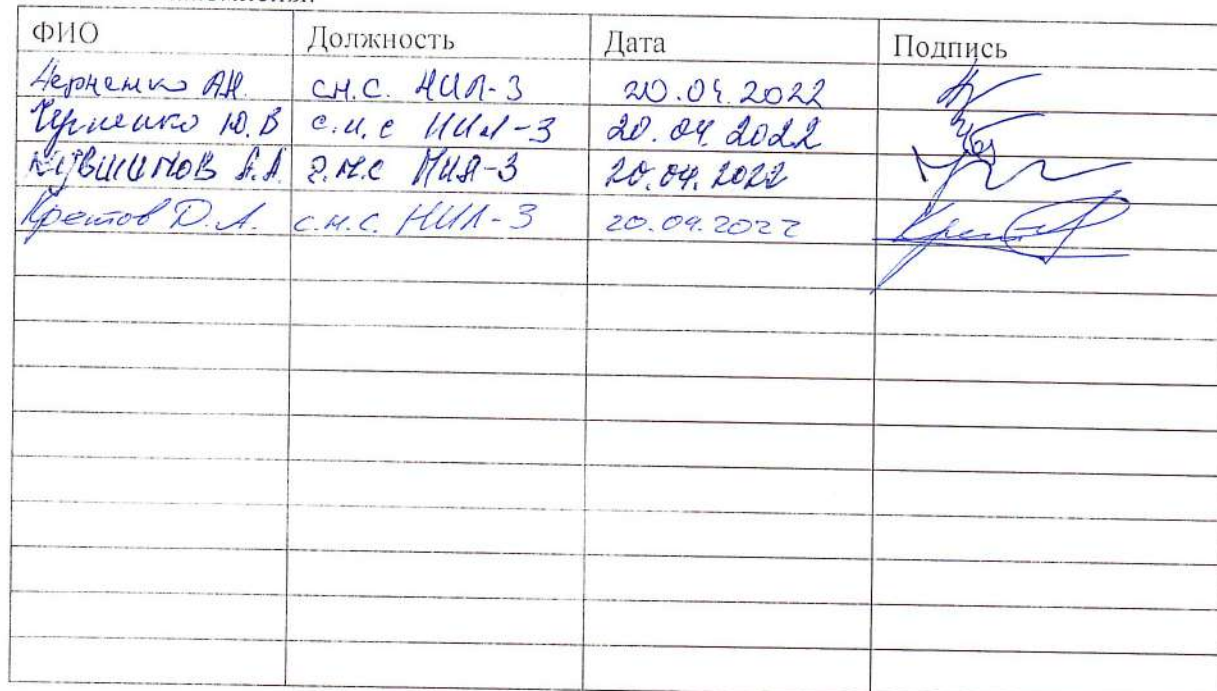 ФИО Должность Дата Подпись
А.Н. с.н.с. НИЛ-3 20.04.2022
Черненко Ю.В с.н.с НИЛ-3 20.04.2022
Кувшинов А.А. г.н.с НИЛ-3 20.04.2022
Кретов Д.А. с.н.с. НИЛ-3 20.04.2022